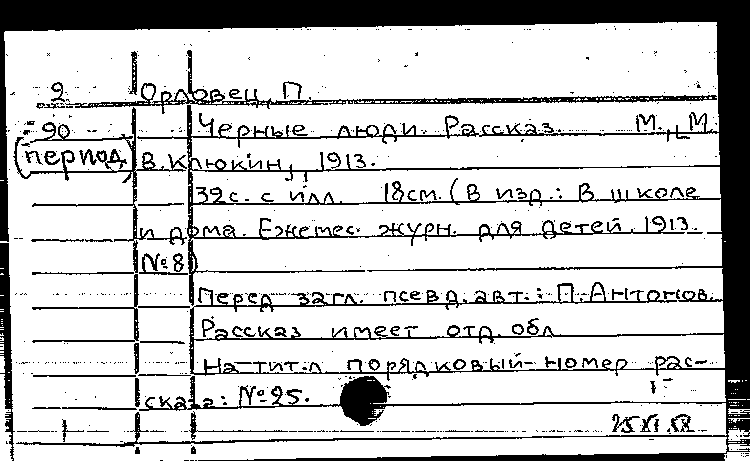 9 Орловец, П.
90 Черные люди. Рассказ. М., М.
(период) В. Клюкин, 1913.
32с. с илл. 18см. (В изд.: В школе
и дома. Ежемес. журн. для детей. 1913.
№8)
Перед загл. псевд. авт.: П. Антонов.
Рассказ имеет отд. обл
На тит. л порядковый номер рас-
сказа: №25.